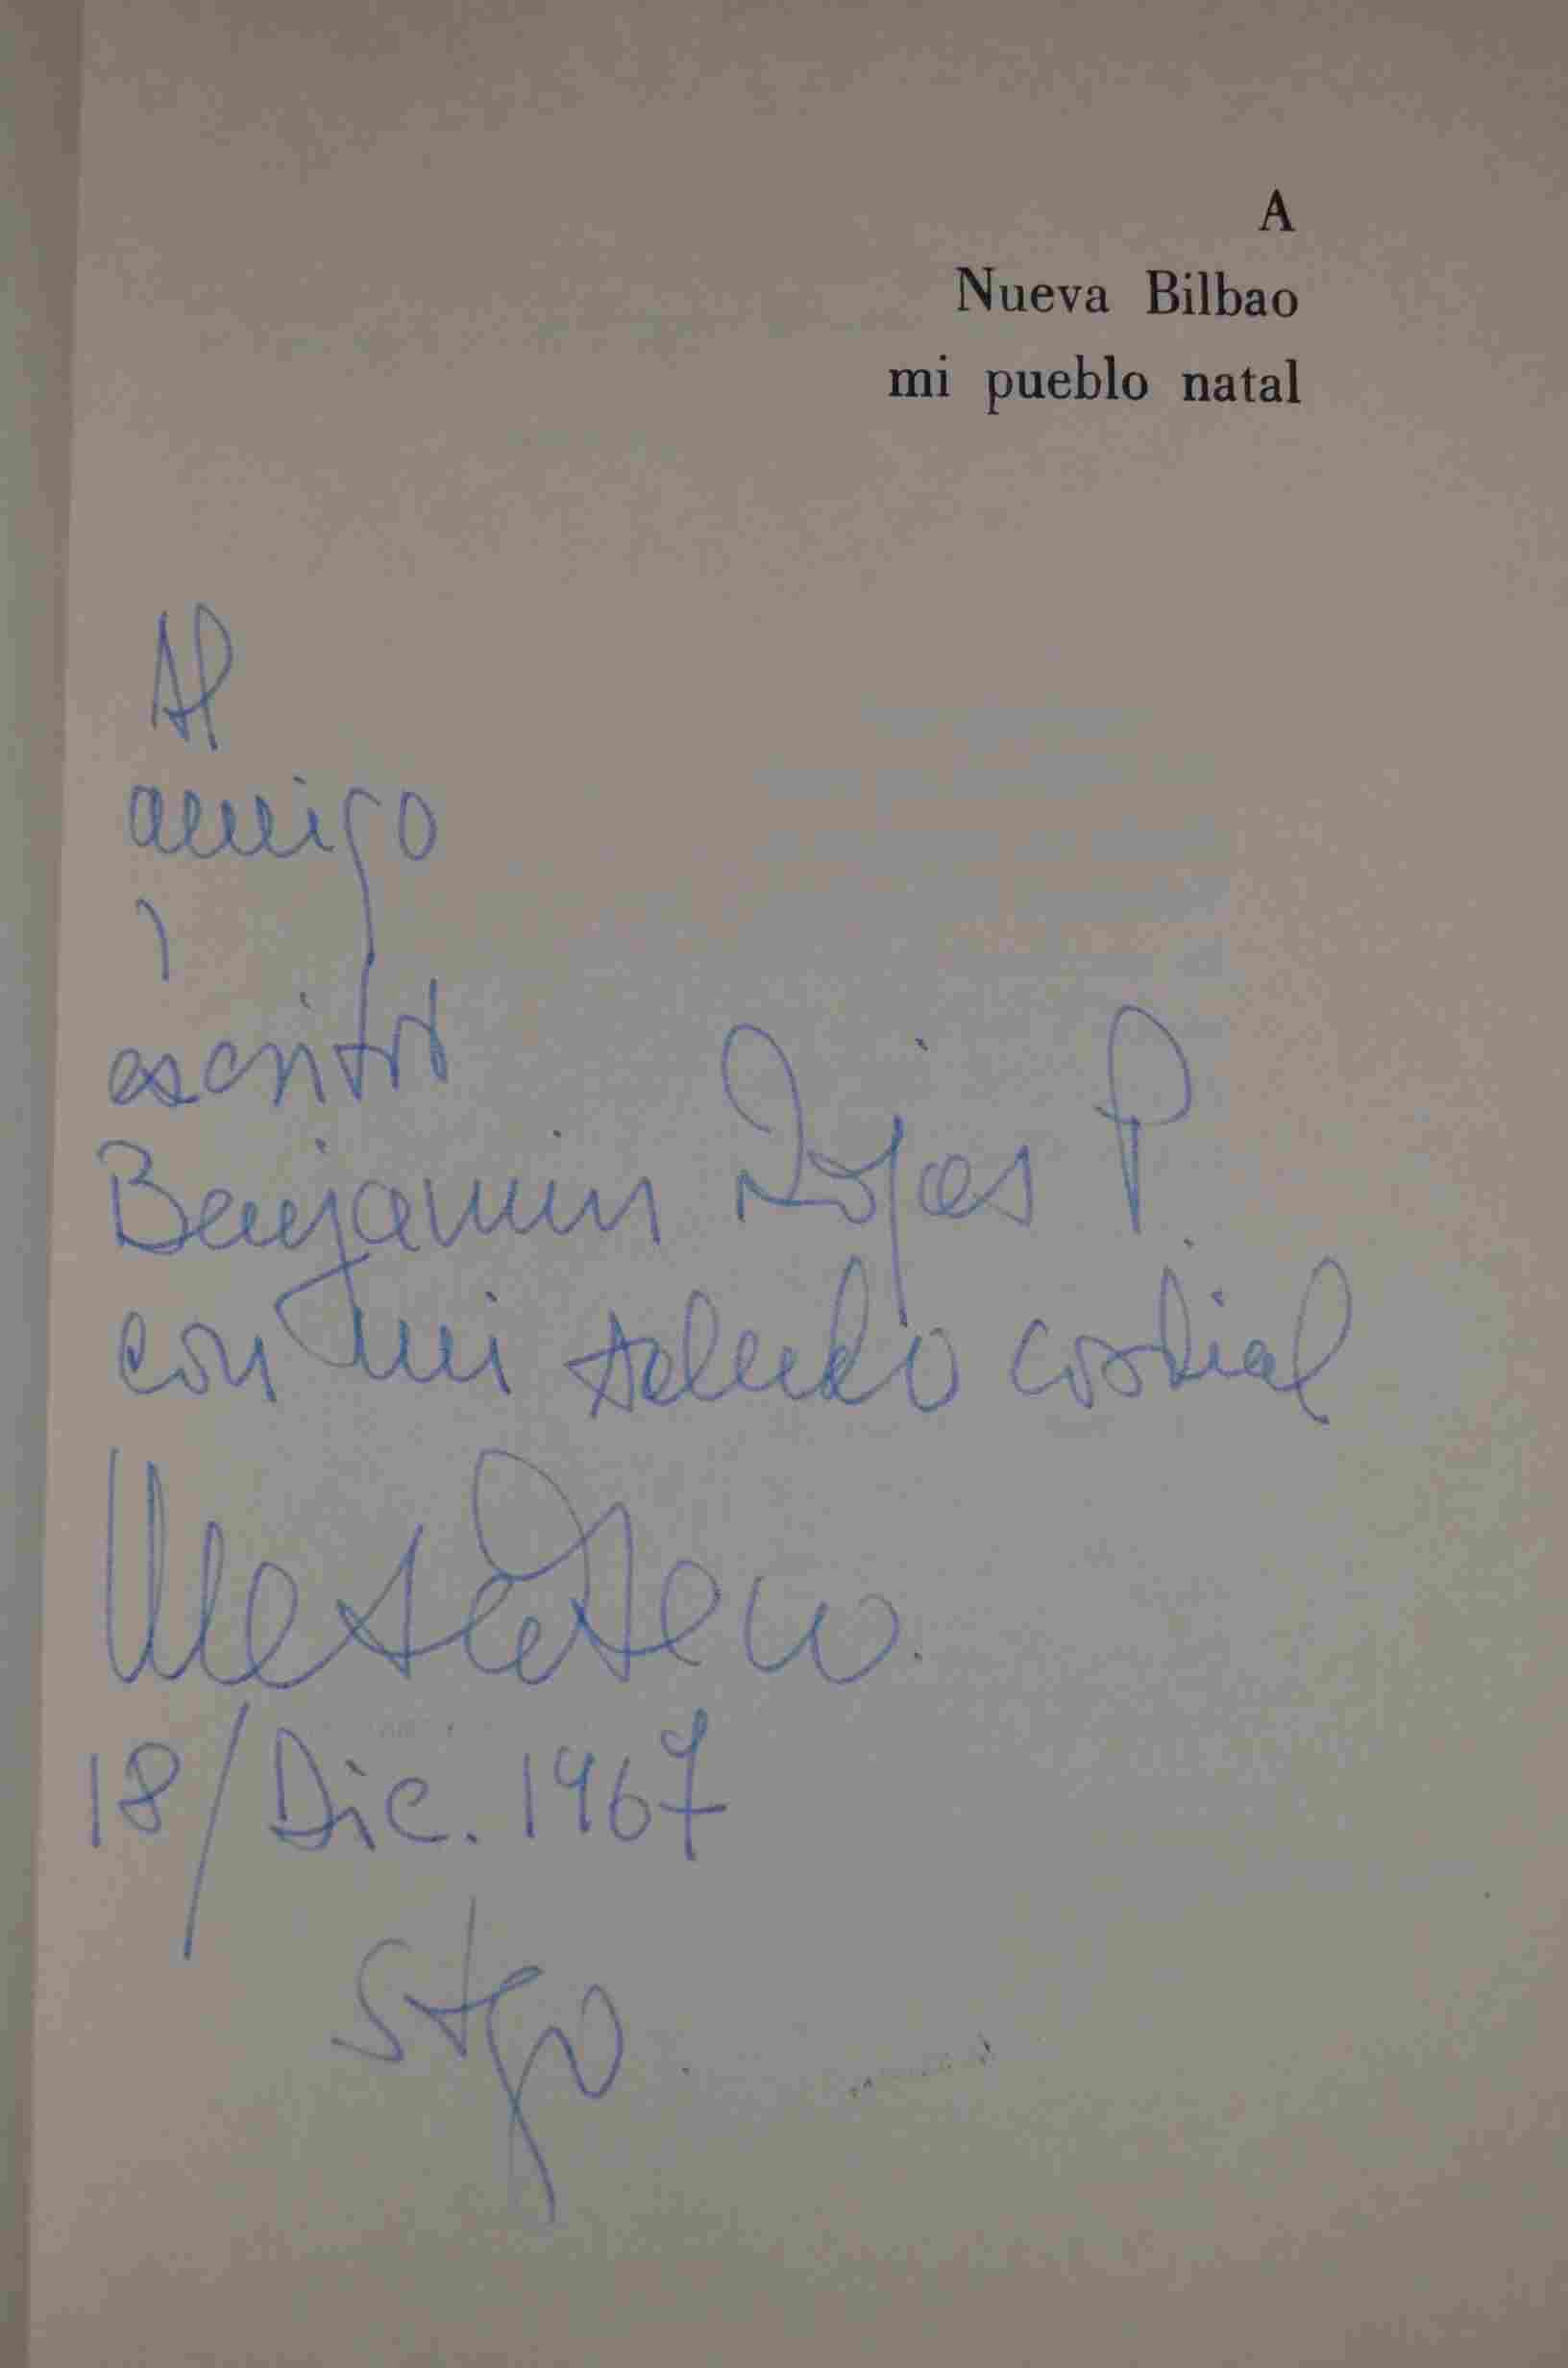 A
Nueva Bilbao
mi pueblo natal
Al
amigo
i
escritor
Benjamin Rojas P.
con mi saludo cordial
18/Dic. 1967
Stgo